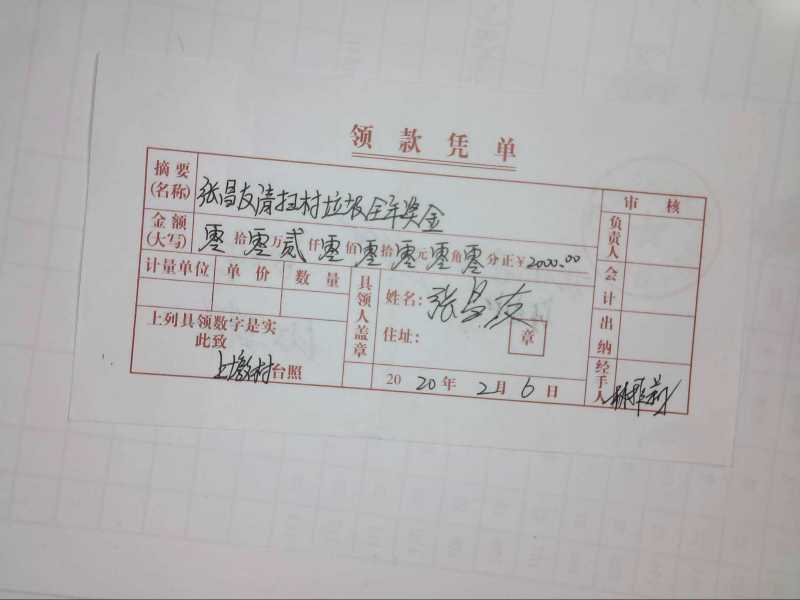 领款凭单
摘要(名称) 张昌友清扫村垃圾全年奖金
审核
金额(大写) 零拾零万贰仟零佰零拾零元零角零分正¥2000.00
负责人
计量单位 单价 数量
具领人盖章
姓名: 张昌友
会计
住址: 章
出纳
上列具领数字是实
此致
上墩村台照
2020年2月6日
经手人